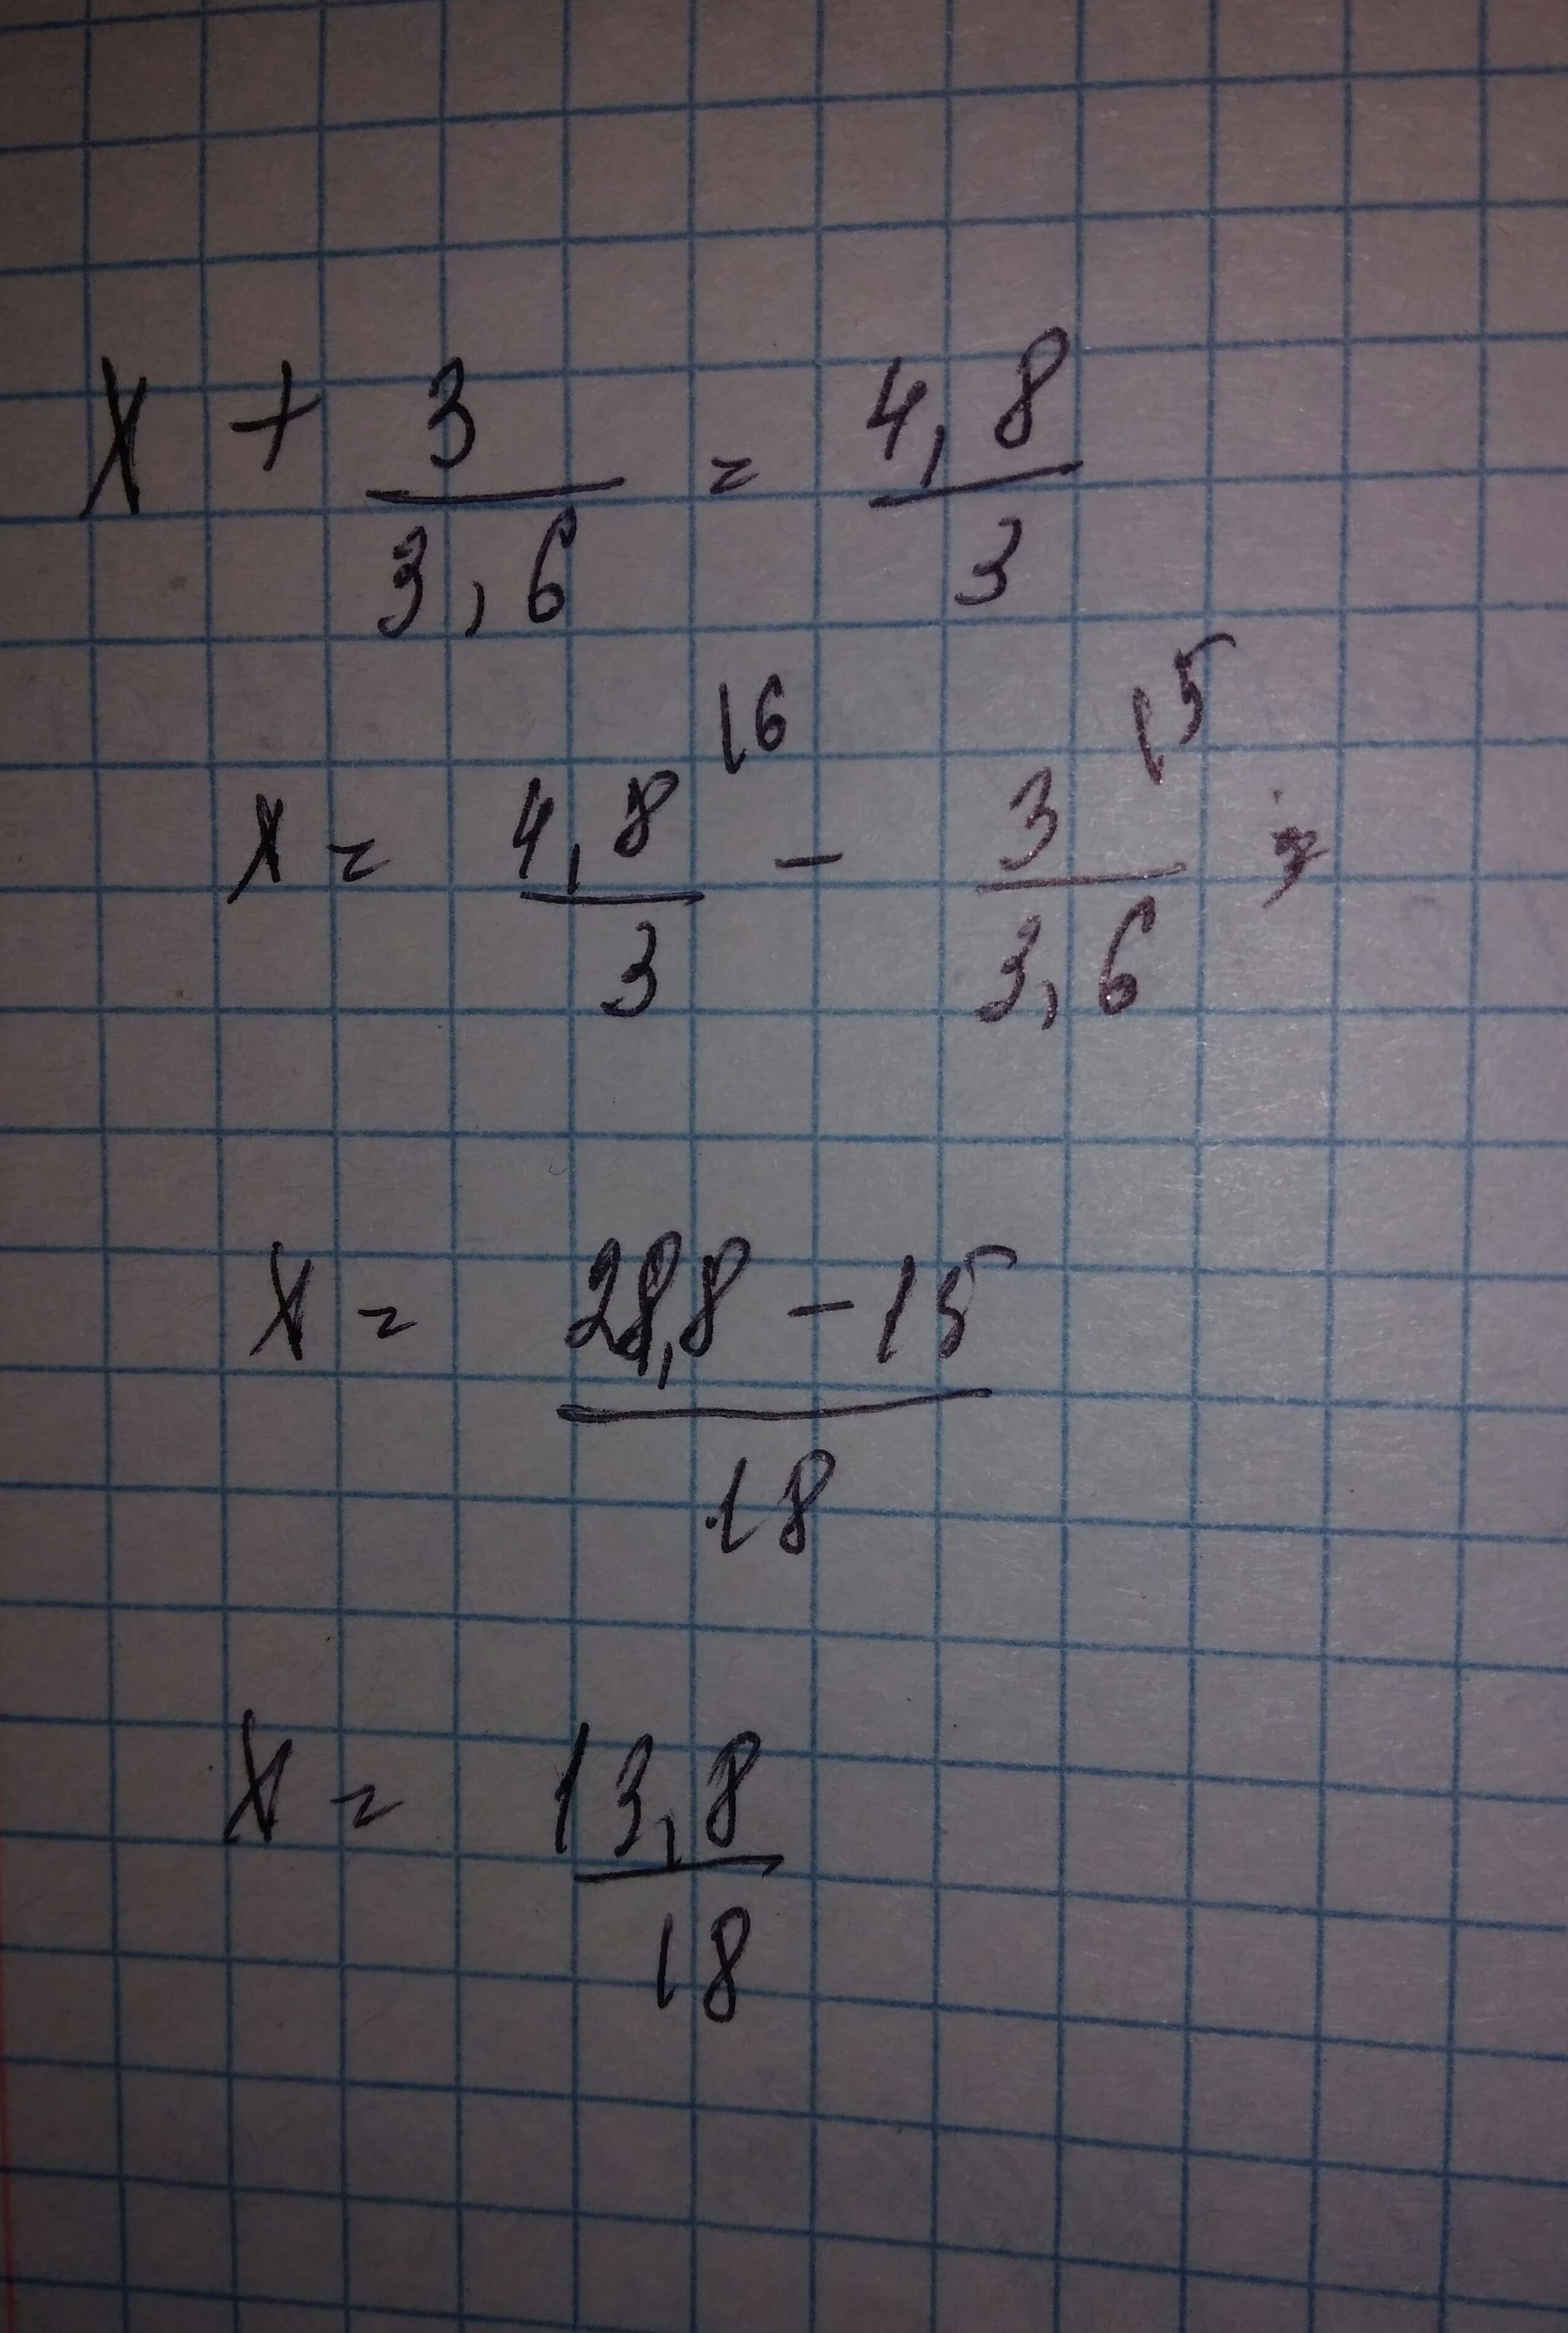 x + 3/3,6 = 4,8/3
x = 4,8/3 16 - 3/3,6 15
x = 28,8 - 15/18
x = 13,8/18